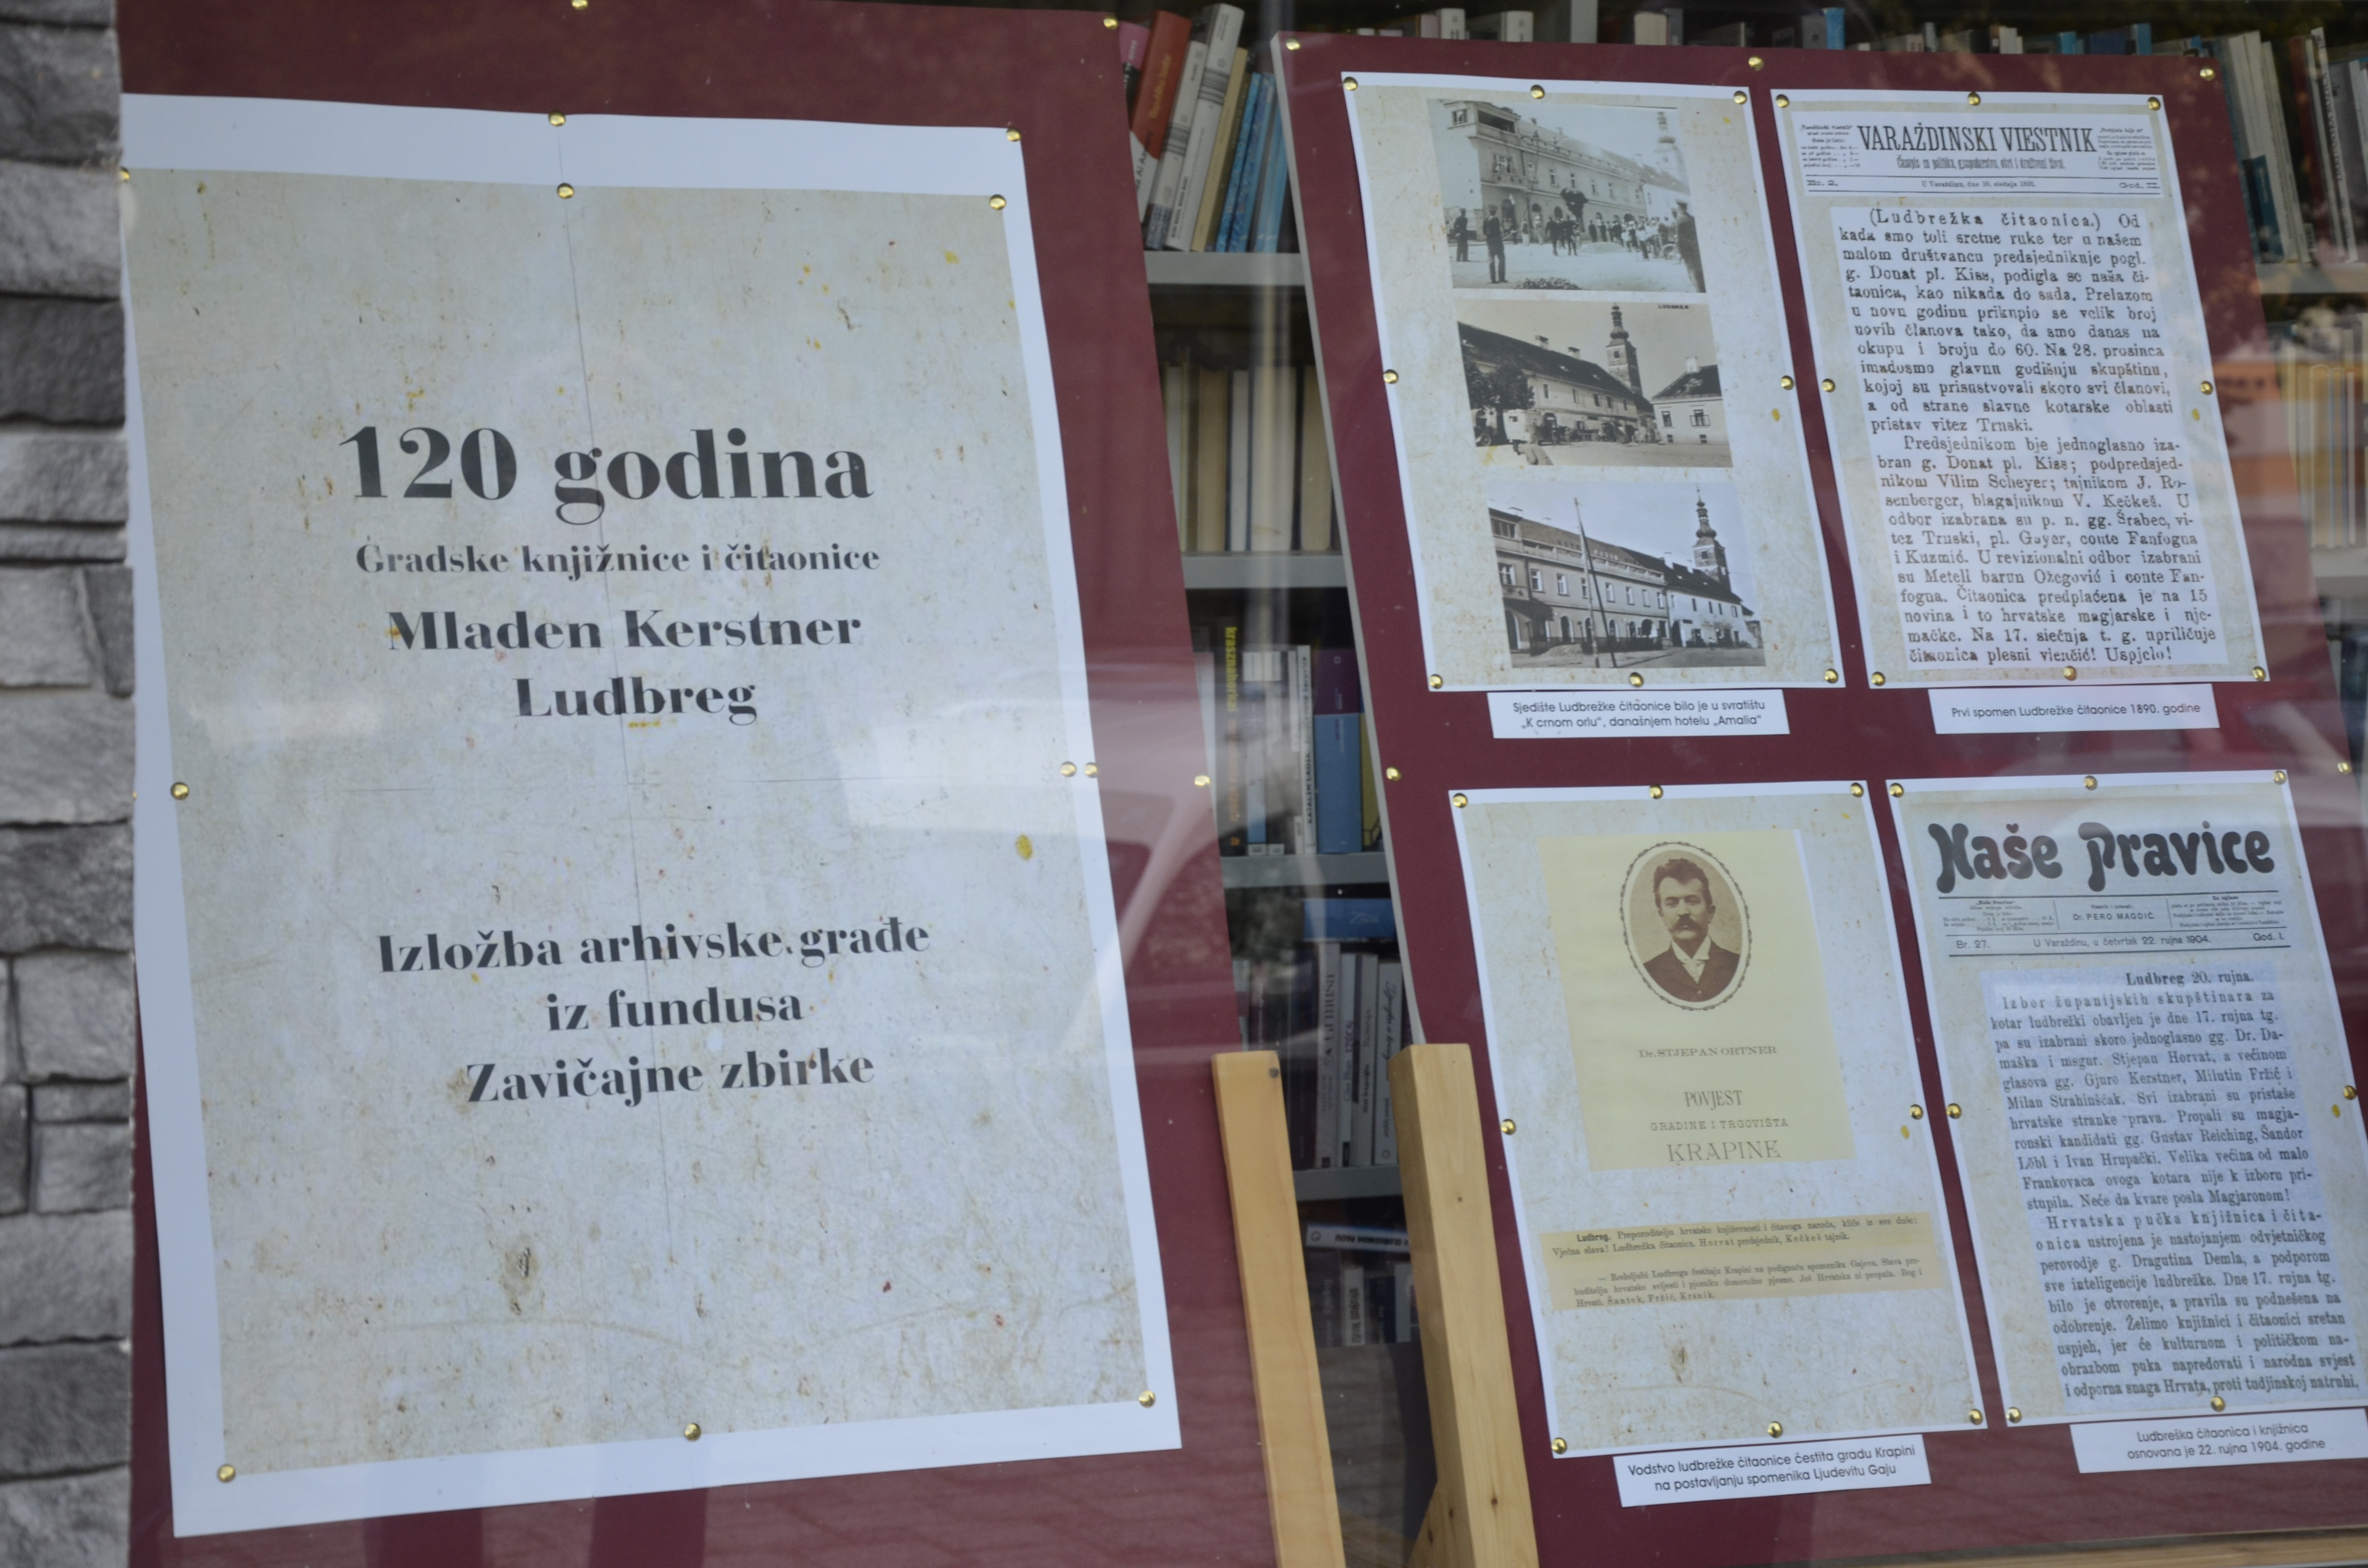 120 godina
Gradske knjižnice i čitaonice
Mladen Kerstner
Ludbreg
Izložba arhivske građe
iz fundusa
Zavičajne zbirke
LUDBREG
Sjedište Ludbrežke čitaonice bilo je u svratištu
„K crnom orlu“, današnjem hotelu „Amalia“
VARAŽDINSKI VIESTNIK
Časopis za politiku, gospodarstvo, obrt i društveni život.
Br. 2.
U Varaždinu, dne
God. II.
(Ludbrežka čitaonica.) Od
kada smo toli sretne ruke ter u našem
malom družtvancu predsjednikuje pogl.
g. Donat pl. Kiss, podigla se naša či-
taonica, kao nikada do sada. Prelazom
u novu godinu prikupio se velik broj
novih članova tako, da smo danas na
okupu i broju do 60. Na 28. prosinca
imadosmo glavnu godišnju skupštinu,
kojoj su prisustvovali skoro svi članovi,
a od strane slavne kotarske oblasti
pristav vitez Trnski.
Predsjednikom bje jednoglasno iza-
bran g. Donat pl. Kiss; podpredsjed-
nikom Vilim Scheyer; tajnikom J. Ro-
senberger, blagajnikom V. Kečkeš. U
odbor izabrana su p. n. gg. Šrabec, vi-
tez Trnski, pl. Gayer, conte Fanfogna
i Kuzmić. U revizionalni odbor izabrani
su Metell barun Ožegović i conte Fan-
fogna. Čitaonica predplaćena je na 15
novina i to hrvatske magjarske i nje-
mačke. Na 17. siečnja t. g. upriličuje
čitaonica plesni vienčić! Uspjelo!
Prvi spomen Ludbrežke čitaonice 1890. godine
Dr. STJEPAN ORTNER
POVJEST
GRADINE I TRGOVIŠTA
KRAPINE
Ludbreg. Preporoditelju hrvatske književnosti i čitavoga naroda, kliče iz sve duše:
Vječna slava! Ludbrežka čitaonica. Horvat predsjednik, Kečkeš tajnik.
— Rodoljubi Ludbrega čestitaju Krapini na podignuću spomenika Gajeva. Slava pro-
buditelju hrvatske svijesti i pjesniku domorodne pjesme. Još Hrvatska ni propala. Bog i
Hrvati. Šantek, Fržić, Kranik.
Vodstvo ludbrežke čitaonice čestita gradu Krapini
na postavljanju spomenika Ljudevitu Gaju
Naše Pravice
Dr. PERO MAGDIĆ.
Br. 27.
U Varaždinu, u četvrtak 22. rujna 1904.
God. I.
Ludbreg 20. rujna.
Izbor županijskih skupštinara za
kotar ludbrežki obavljen je dne 17. rujna tg.
pa su izabrani skoro jednoglasno gg. Dr. Da-
maška i msgnr. Stjepan Horvat, a većinom
glasova gg. Gjuro Kerstner, Milutin Fržić i
Milan Strahinšćak. Svi izabrani su pristaše
hrvatske stranke prava. Propali su magja-
ronski kandidati gg. Gustav Reiching, Šandor
Löbl i Ivan Hrupački. Velika većina od malo
Frankovaca ovoga kotara nije k izboru pri-
stupila. Neće da kvare posla Magjaronom!
Hrvatska pučka knjižnica i čita-
onica ustrojena je nastojanjem odvjetničkog
perovodje g. Dragutina Demla, a podporom
sve inteligencije ludbrežke. Dne 17. rujna tg.
bilo je otvorenje, a pravila su podnešena na
odobrenje. Želimo knjižnici i čitaonici sretan
uspjeh, jer će kulturnom i političkom na-
obrazbom puka napredovati i narodna svjest
i odporna snaga Hrvata, proti tudjinskoj natruhi.
Ludbreška čitaonica i knjižnica
osnovana je 22. rujna 1904. godine